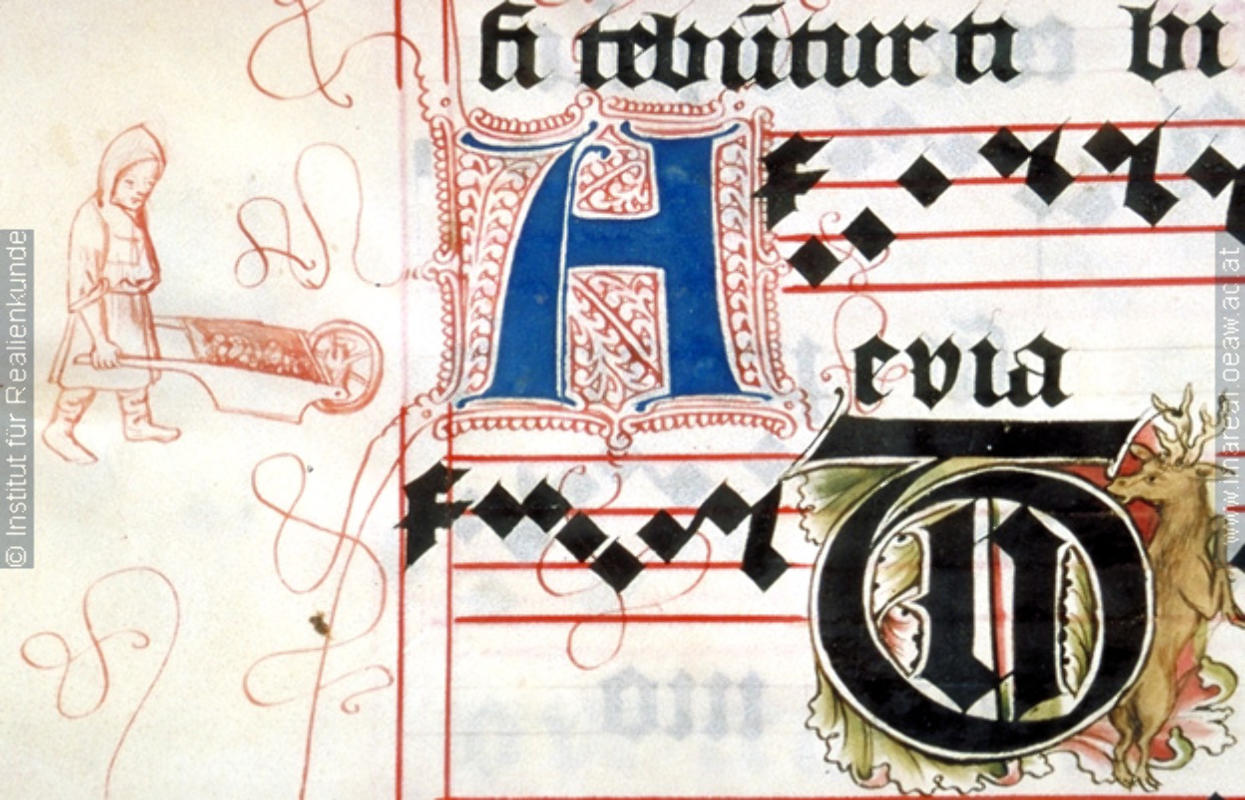 fi tebūtur ti bi
A evia
© Institut für Realienkunde
www.inareal.oeaw.ac.at